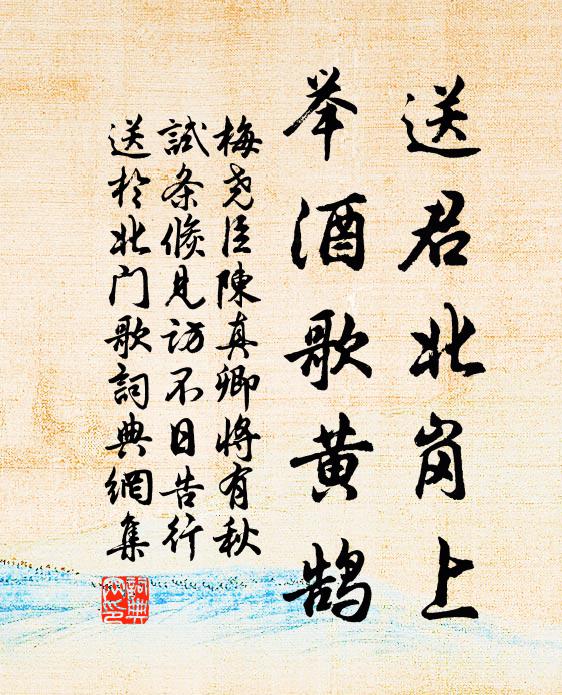 送君北岗上
举酒歌黄鹄
梅尧臣陳真卿将有秋
試条倏見訪不日告行
送於北门歌詞典網集